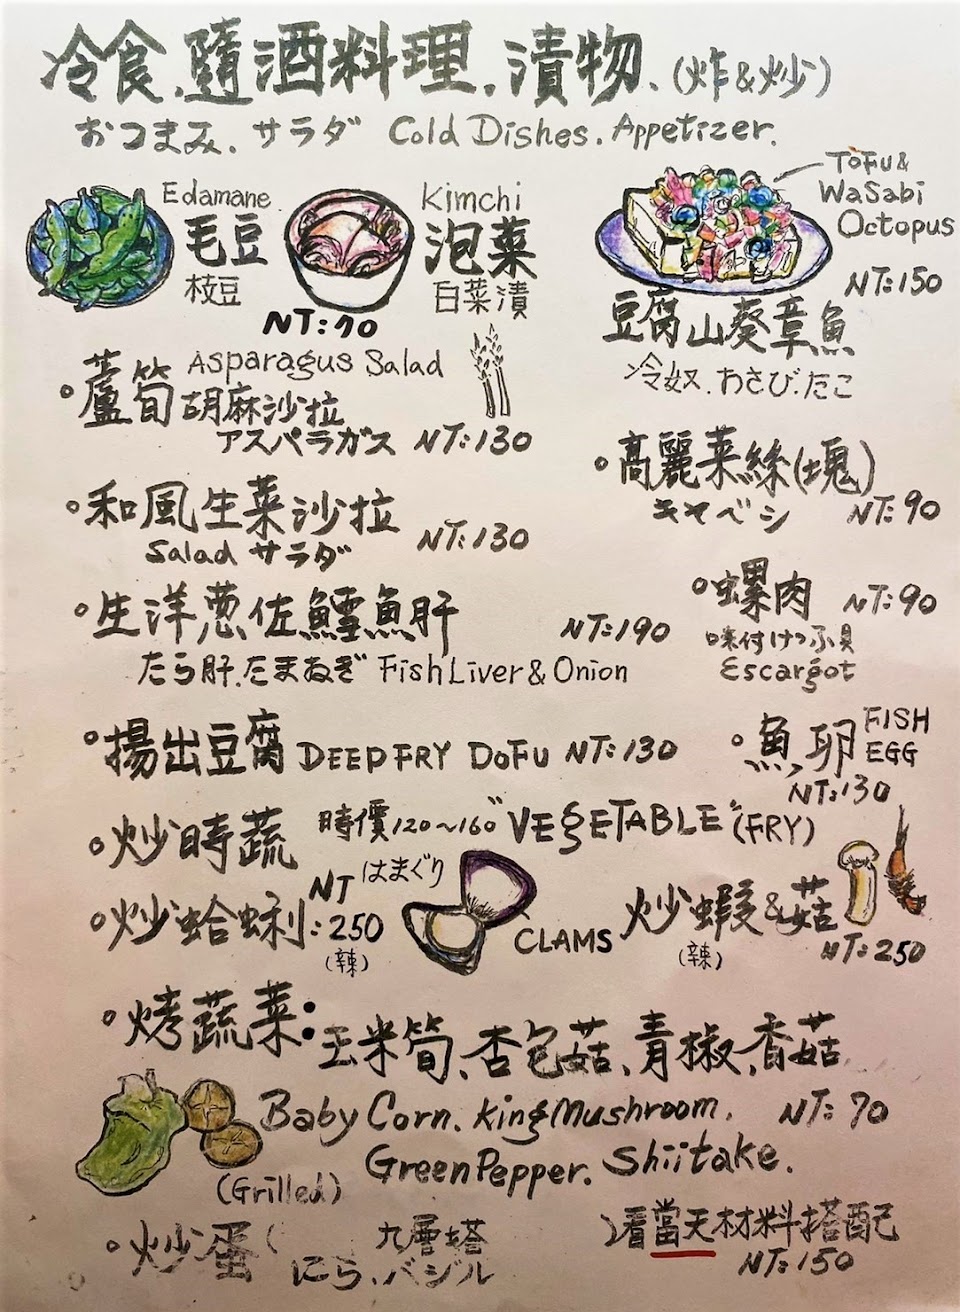 冷食、隨酒料理、漬物、(炸&炒)
おつまみ、サラダ Cold Dishes. Appetizer.
Edamane
毛豆
枝豆
Kimchi
泡菜
白菜漬
NT:70
Tofu &
Wasabi
Octopus
NT:150
豆腐山葵章魚
冷奴.わさび.たこ
Asparagus Salad
。蘆筍胡麻沙拉
アスパラガス NT:130
。高麗菜絲(塊)
NT:90
。和風生菜沙拉
Salad サラダ NT:130
。螺肉 NT:90
Escargot
。生洋葱佐鱈魚肝 NT:190
たら肝.たまねぎ Fish Liver & Onion
。揚出豆腐 DEEP FRY DOFU NT:130
。魚卵 FISH
EGG
NT:130
。炒時蔬 時價120~160 "VEgETABLE" (FRY)
。炒蛤蜊: NT
250
(辣)
はまぐり
CLAMS
炒蝦&菇
(辣) NT:250
。烤蔬菜:玉米筍、杏包菇、青椒、香菇
Baby Corn. King Mushroom. NT:70
Green Pepper. Shiitake.
(Grilled)
。炒蛋( 九層塔 )看當天材料搭配
にら、バジル NT:150